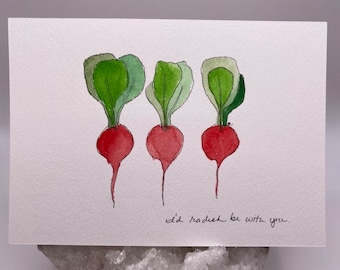 I'd radish be with you.